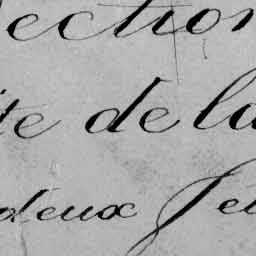 ection
ite de la
deux Je